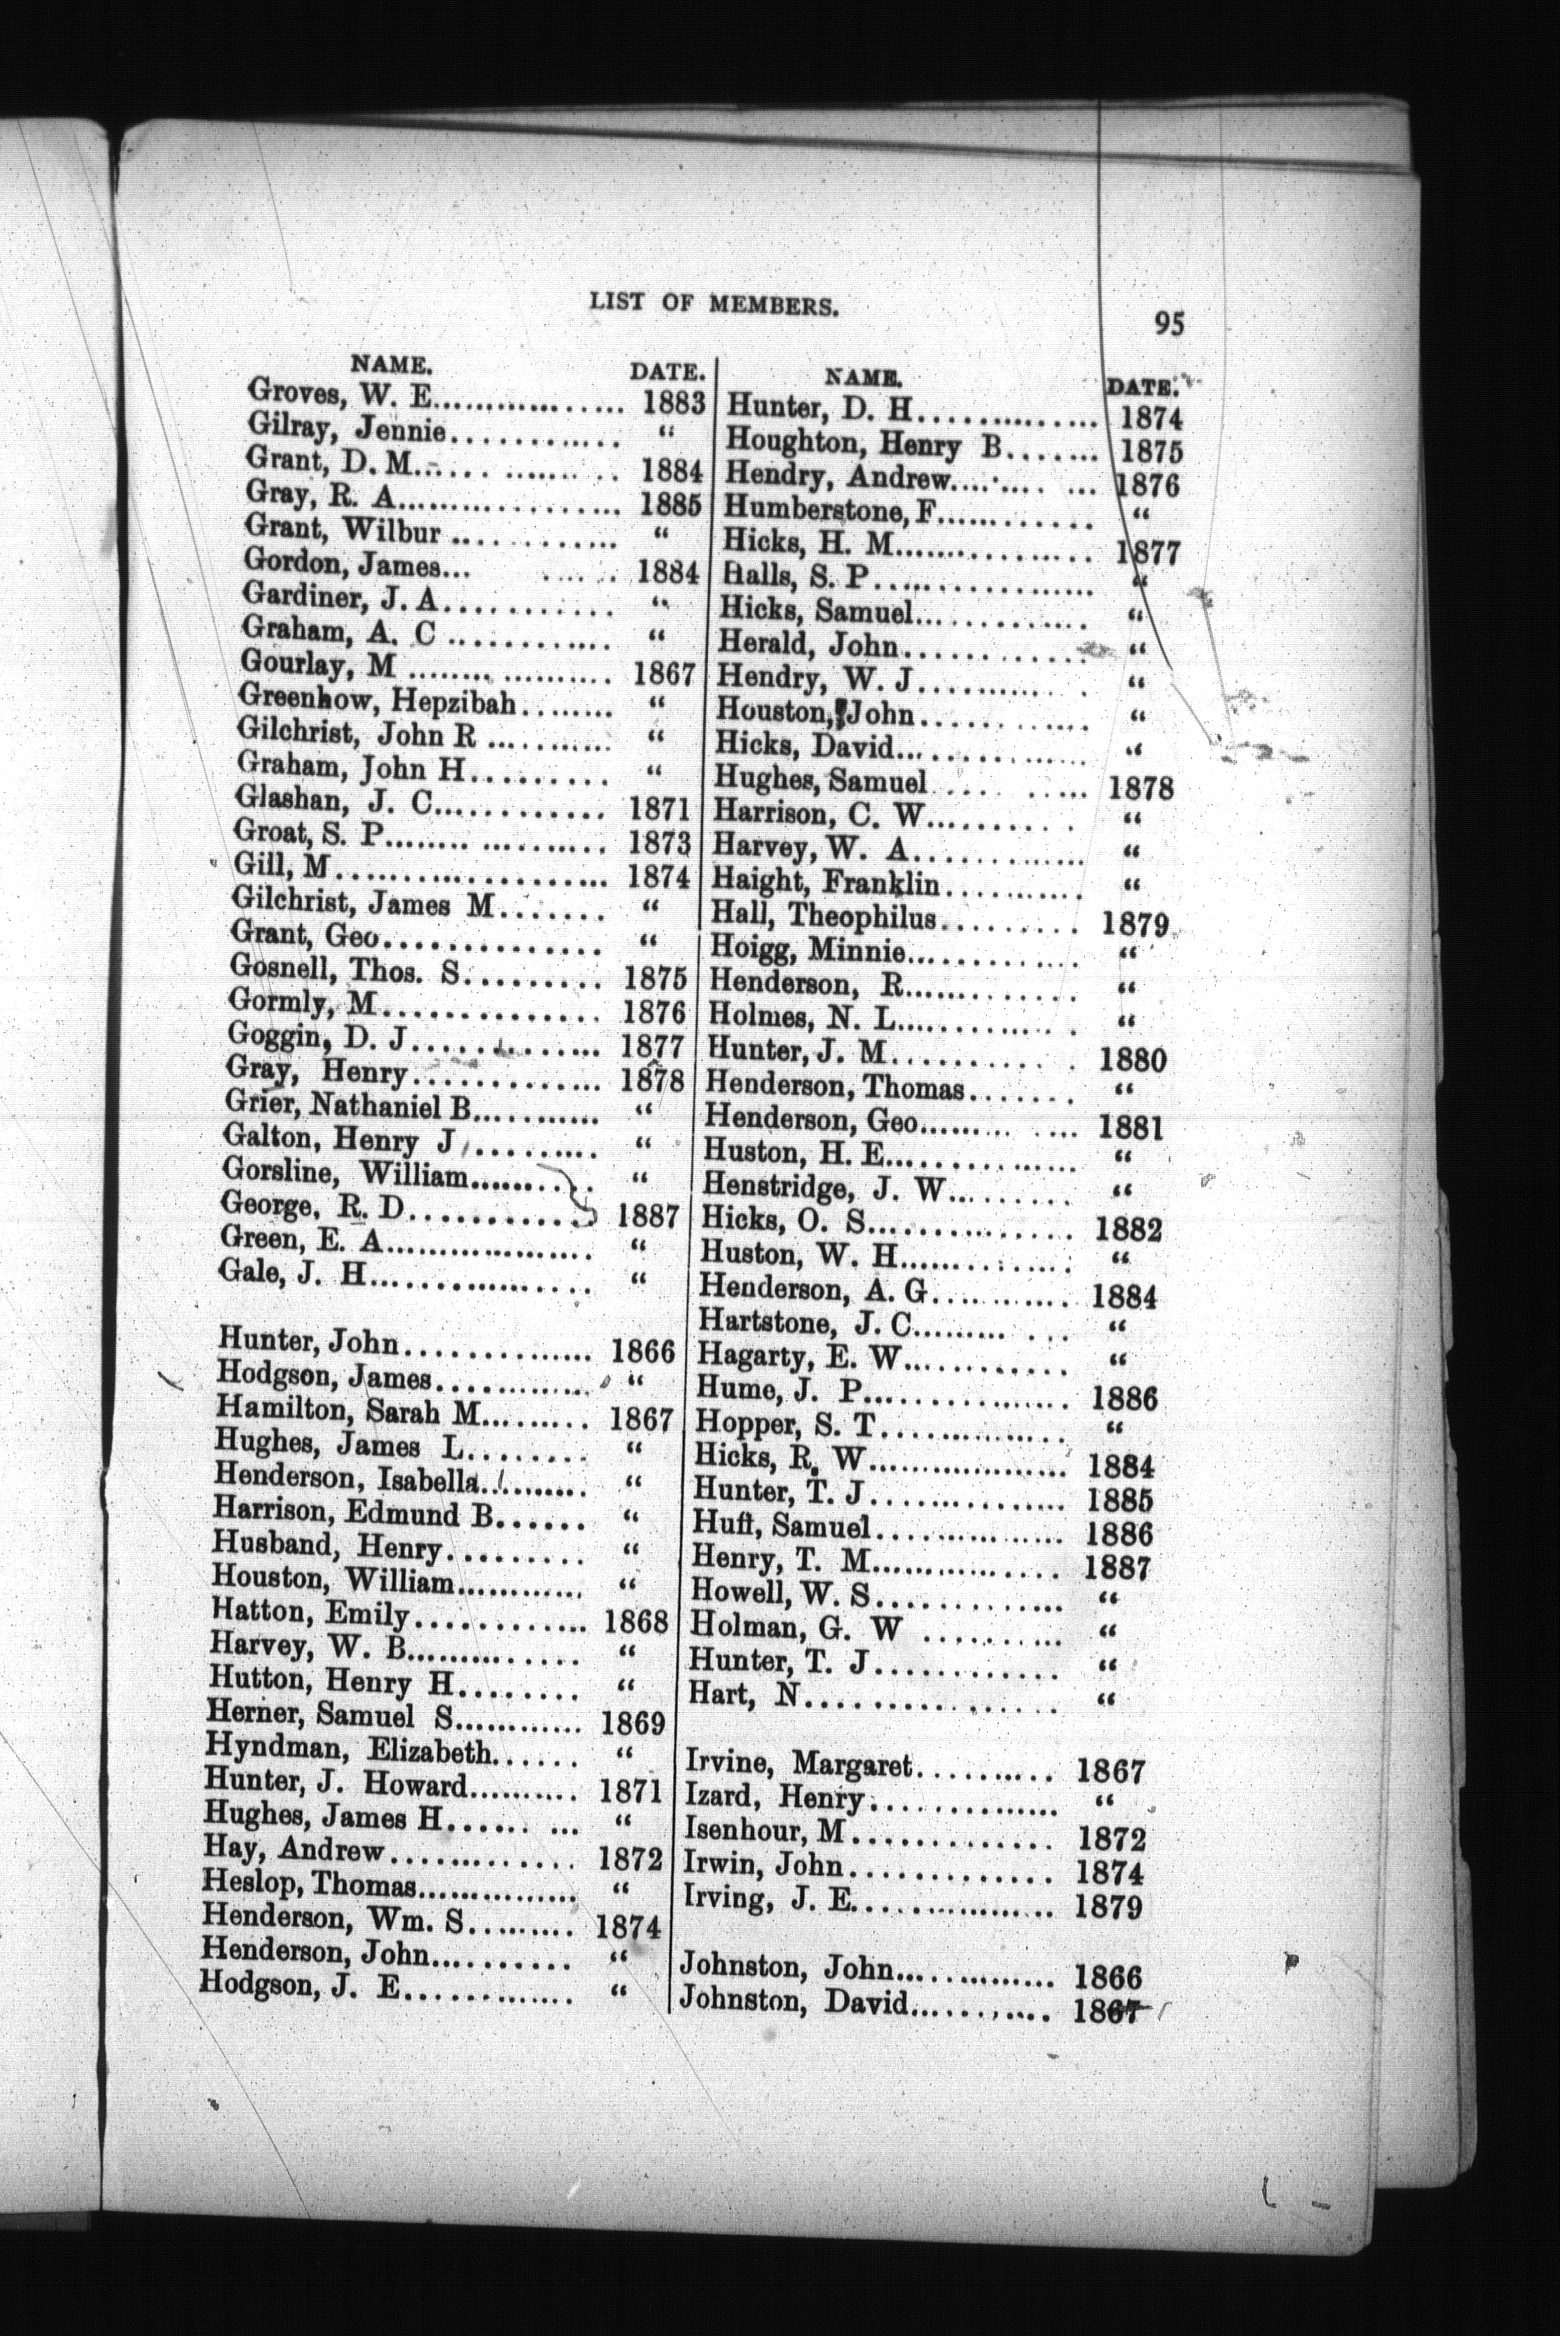 LIST OF MEMBERS.
95
NAME. DATE.
Groves, W. E.................. 1883
Gilray, Jennie............ “
Grant, D. M............... 1884
Gray, R. A.................. 1885
Grant, Wilbur ............. “
Gordon, James... ..... 1884
Gardiner, J. A............ “
Graham, A. C ............ “
Gourlay, M .................. 1867
Greenhow, Hepzibah........ “
Gilchrist, John R ........... “
Graham, John H......... “
Glashan, J. C............. 1871
Groat, S. P.................. 1873
Gill, M..................... 1874
Gilchrist, James M....... “
Grant, Geo............... “
Gosnell, Thos. S......... 1875
Gormly, M.............. 1876
Goggin, D. J............. 1877
Gray, Henry............. 1878
Grier, Nathaniel B........... “
Galton, Henry J ......... “
Gorsline, William.......... “
George, R. D............ 1887
Green, E. A.................. “
Gale, J. H................... “
Hunter, John.............. 1866
Hodgson, James............ “
Hamilton, Sarah M......... 1867
Hughes, James L........ “
Henderson, Isabella......... “
Harrison, Edmund B...... “
Husband, Henry......... “
Houston, William............ “
Hatton, Emily............ 1868
Harvey, W. B.............. “
Hutton, Henry H........ “
Herner, Samuel S............ 1869
Hyndman, Elizabeth...... “
Hunter, J. Howard.......... 1871
Hughes, James H...... ... “
Hay, Andrew.............. 1872
Heslop, Thomas............... “
Henderson, Wm. S......... 1874
Henderson, John........... “
Hodgson, J. E............. “
NAME. DATE.
Hunter, D. H............... 1874
Houghton, Henry B....... 1875
Hendry, Andrew......... ... 1876
Humberstone, F............ “
Hicks, H. M................. 1877
Halls, S. P.................. “
Hicks, Samuel............. “
Herald, John............. “
Hendry, W. J............ “
Houston, John............ “
Hicks, David.............. “
Hughes, Samuel .......... 1878
Harrison, C. W........... “
Harvey, W. A............. “
Haight, Franklin.......... “
Hall, Theophilus......... 1879
Hoigg, Minnie............. “
Henderson, R............. “
Holmes, N. L.............. “
Hunter, J. M............. 1880
Henderson, Thomas....... “
Henderson, Geo......... .... 1881
Huston, H. E................ “
Henstridge, J. W.......... “
Hicks, O. S................. 1882
Huston, W. H.............. “
Henderson, A. G........... 1884
Hartstone, J. C......... ... “
Hagarty, E. W............. “
Hume, J. P................. 1886
Hopper, S. T.............. “
Hicks, R. W.................. 1884
Hunter, T. J................ 1885
Huff, Samuel............... 1886
Henry, T. M................ 1887
Howell, W. S.............. “
Holman, G. W .......... “
Hunter, T. J............. “
Hart, N.................. “
Irvine, Margaret.......... 1867
Izard, Henry.............. “
Isenhour, M............. 1872
Irwin, John.............. 1874
Irving, J. E............... 1879
Johnston, John............. 1866
Johnston, David........... 1867